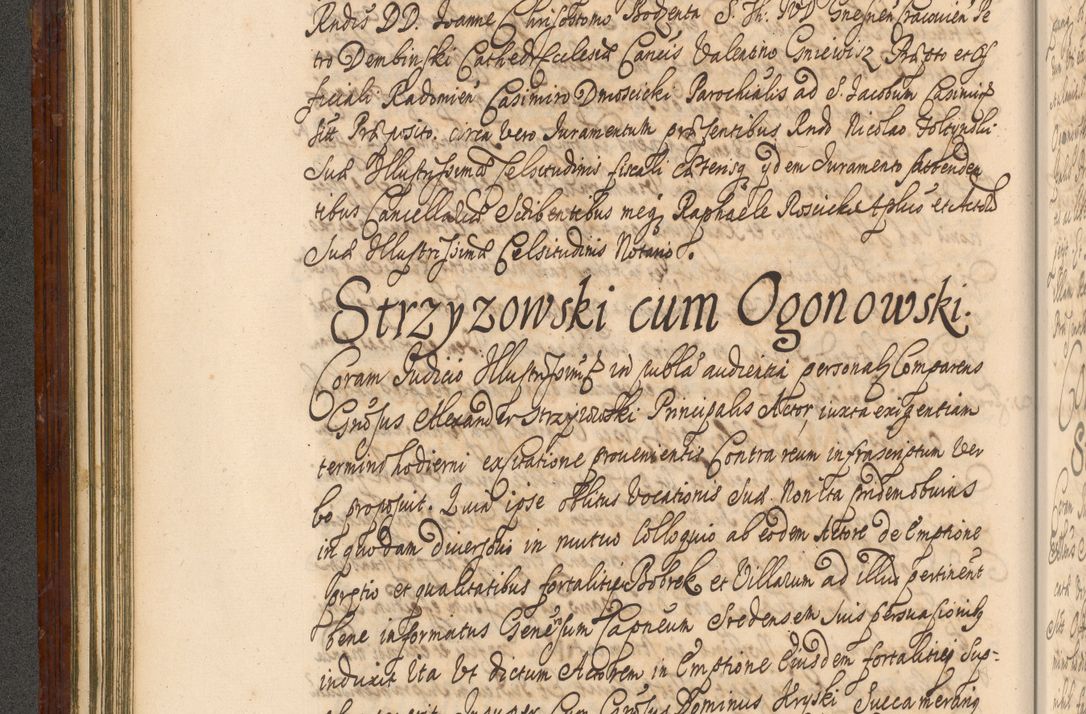 Rndis DD. Joanne Chrisostomo Bodzenta S. Th. IVD Gnesnen Cracovien Pe
tro Dembinski Cathedr Ecclesiæ Cancis Valentino Gniewisz Præpto et Of
ficiali Radomien Casimiro Dmoscicki Parochialis ad S. Jacobum Casimiriæ
sitt Præposito. circa vero Juramentum præsentibus Rndo Nicolao
Suæ Illustrissimæ Celsitudinis fiscali cæterisq ydem Juramento attenden
tibus Cancellariæ Scribentibus meq Raphaele Roscicki Aplico et Actorū
Suæ Illustrissimæ Celsitudinis Notario.
Strzyzowski cum Ogonowski.
Coram Judicio Illustrissimi in publa audientia personalr Comparens
Gnosus Alexander Strzyzowski Principalis Actor, iuxta exigentiam
termini hodierni ex citatione provenientis Contra reum infrascriptum Ver
bo proposuit. Quia ipse oblitus Vocationis Suæ Non ita pridem obuius
in quodam diversorio in mutuo Colloquio ab eodem Actore de Emptione
pretio et qualitatibus fortalitij Bobrek et Villarum ad illud pertinent
bene informatus Generosum Capneum Credensem suis persuasionib
induxit Ita Ut dictum Actorem in Emptione Eiusdem fortalitij Sup=
Cum Carolus Dominus Hryski Succamerarius